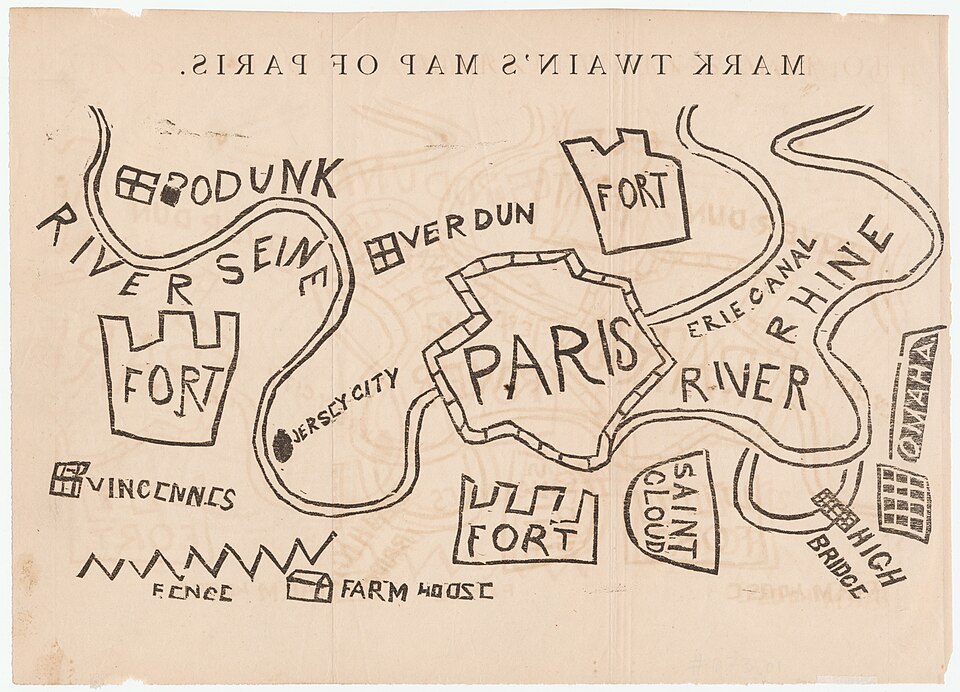 MARK TWAIN'S MAP OF PARIS.
PODUNK
RIVER SEINE
VERDUN
FORT
ERIE CANAL
RIVER RHINE
FORT
PARIS
JERSEY CITY
OMAHA
VINCENNES
FORT
SAINT
CLOUD
HIGH
BRIDGE
FENCE
FARM HOUSE